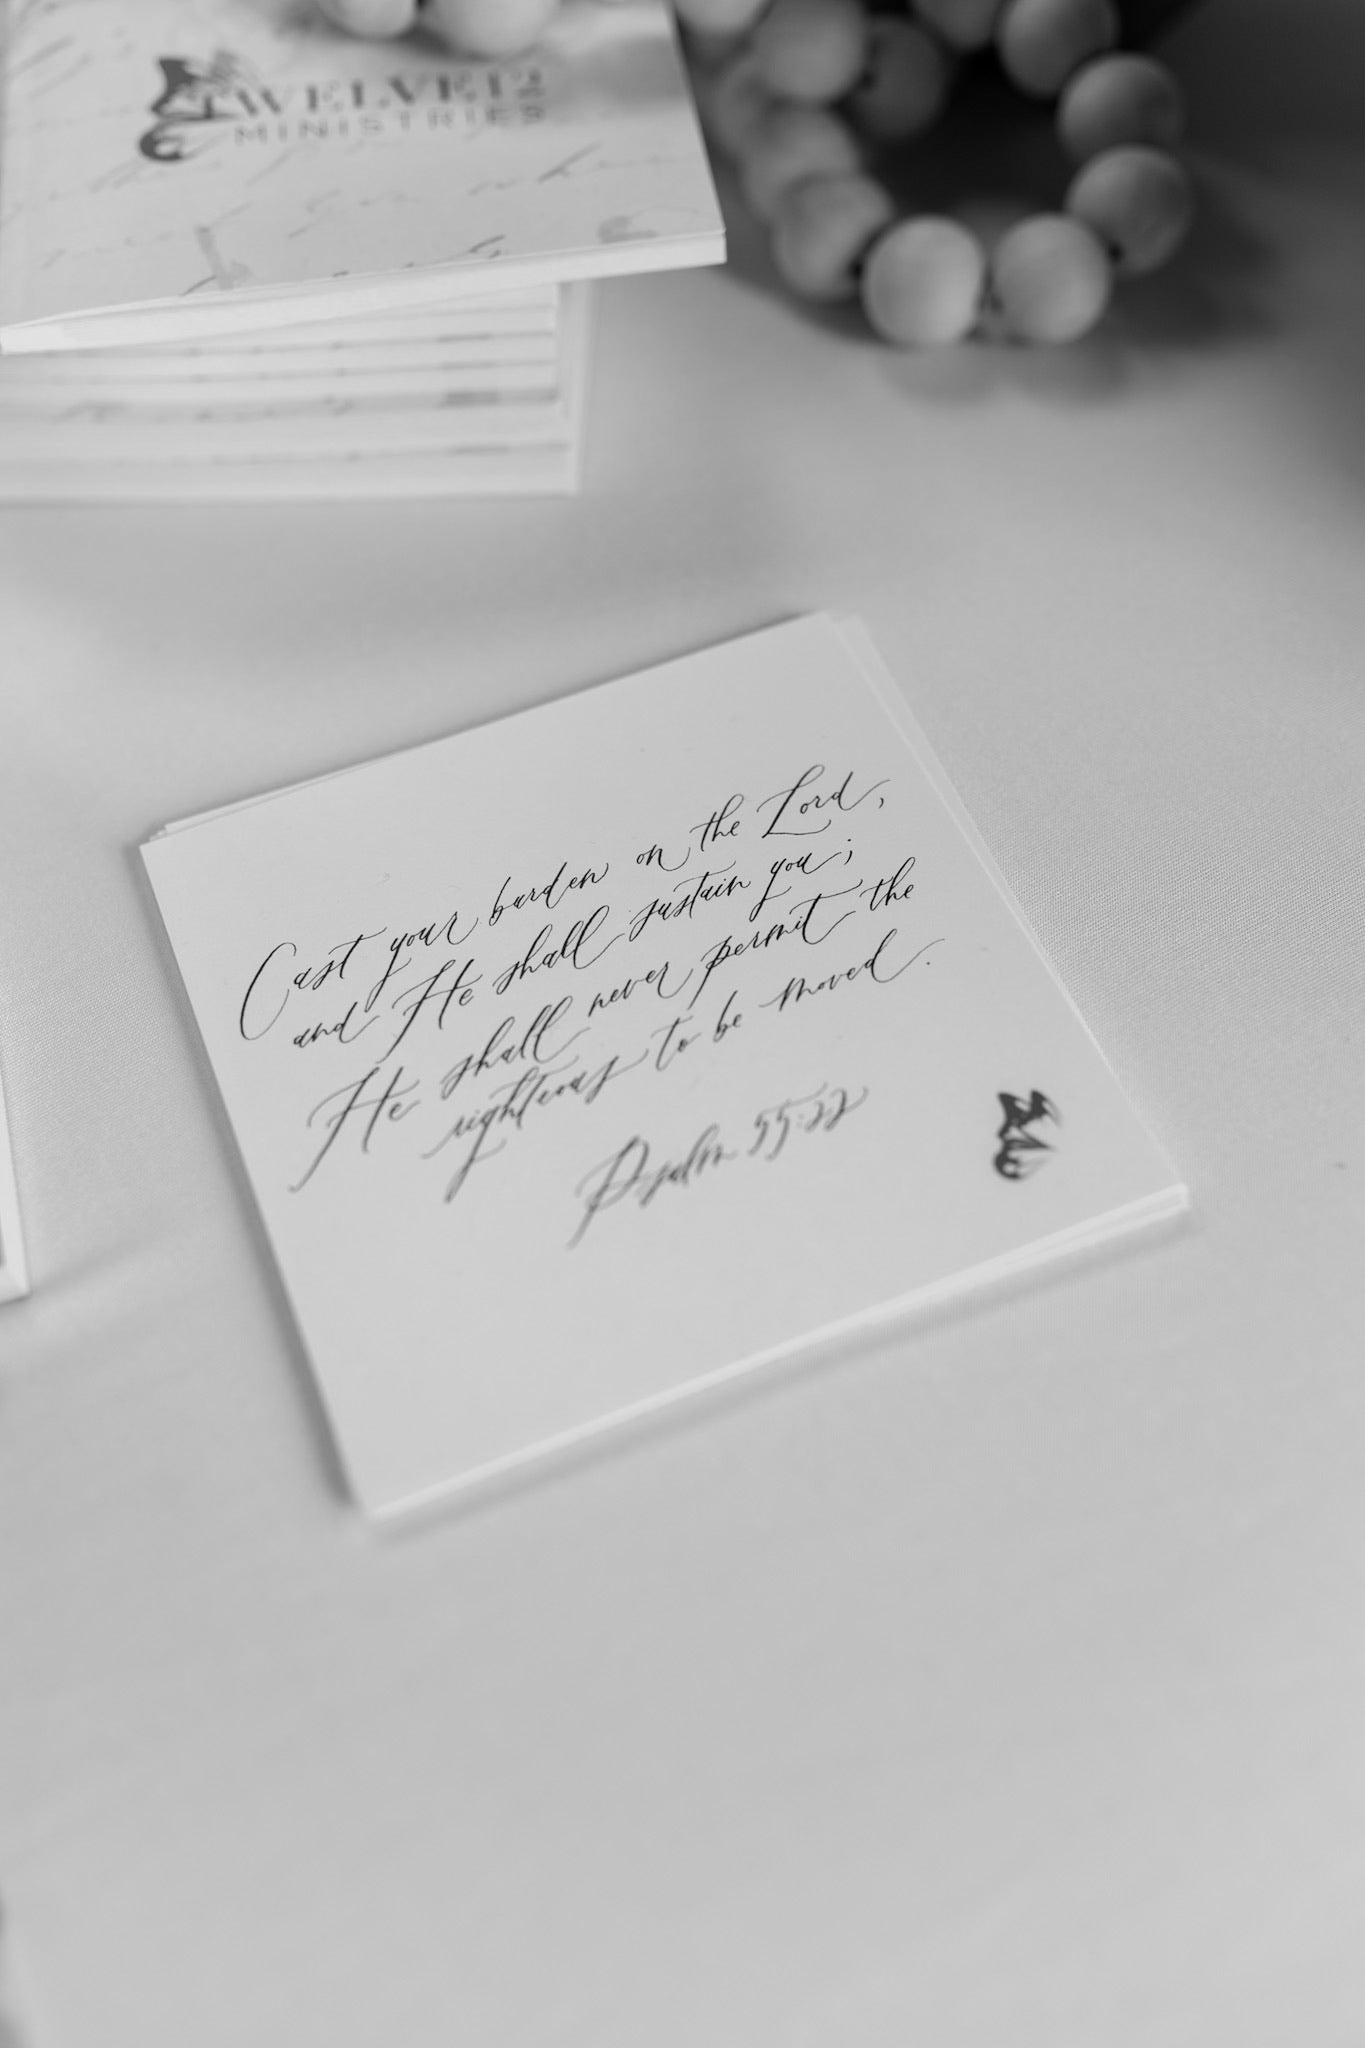 WELVE12
MINISTRIES
Cast your burden on the Lord,
and He shall sustain you;
He shall never permit the
righteous to be moved.
Psalm 55:22